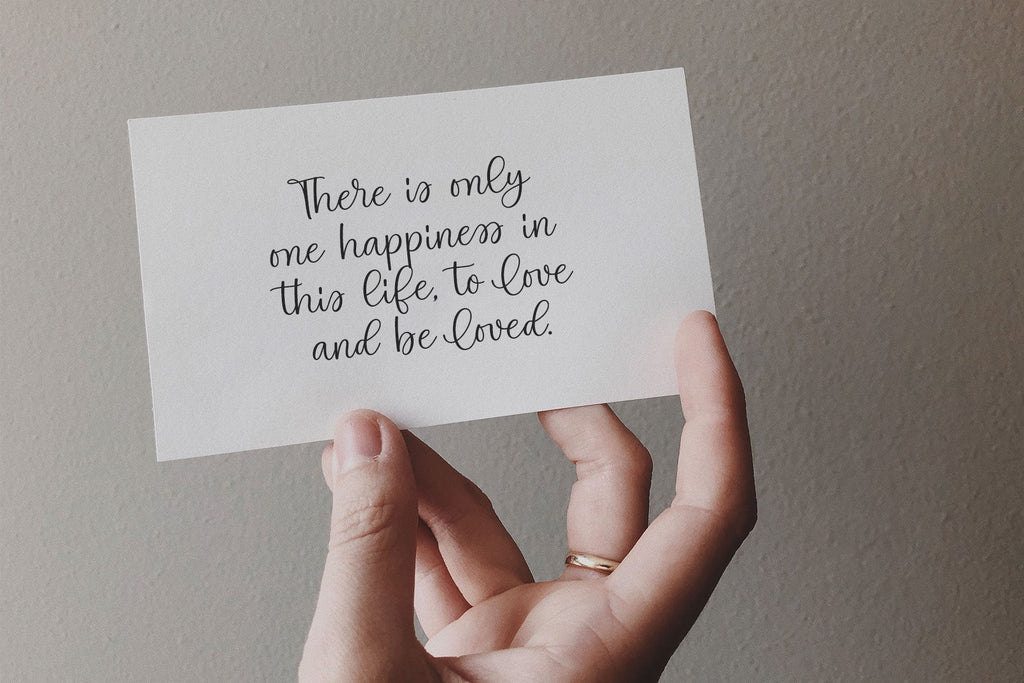 There is only
one happiness in
this life, to love
and be loved.